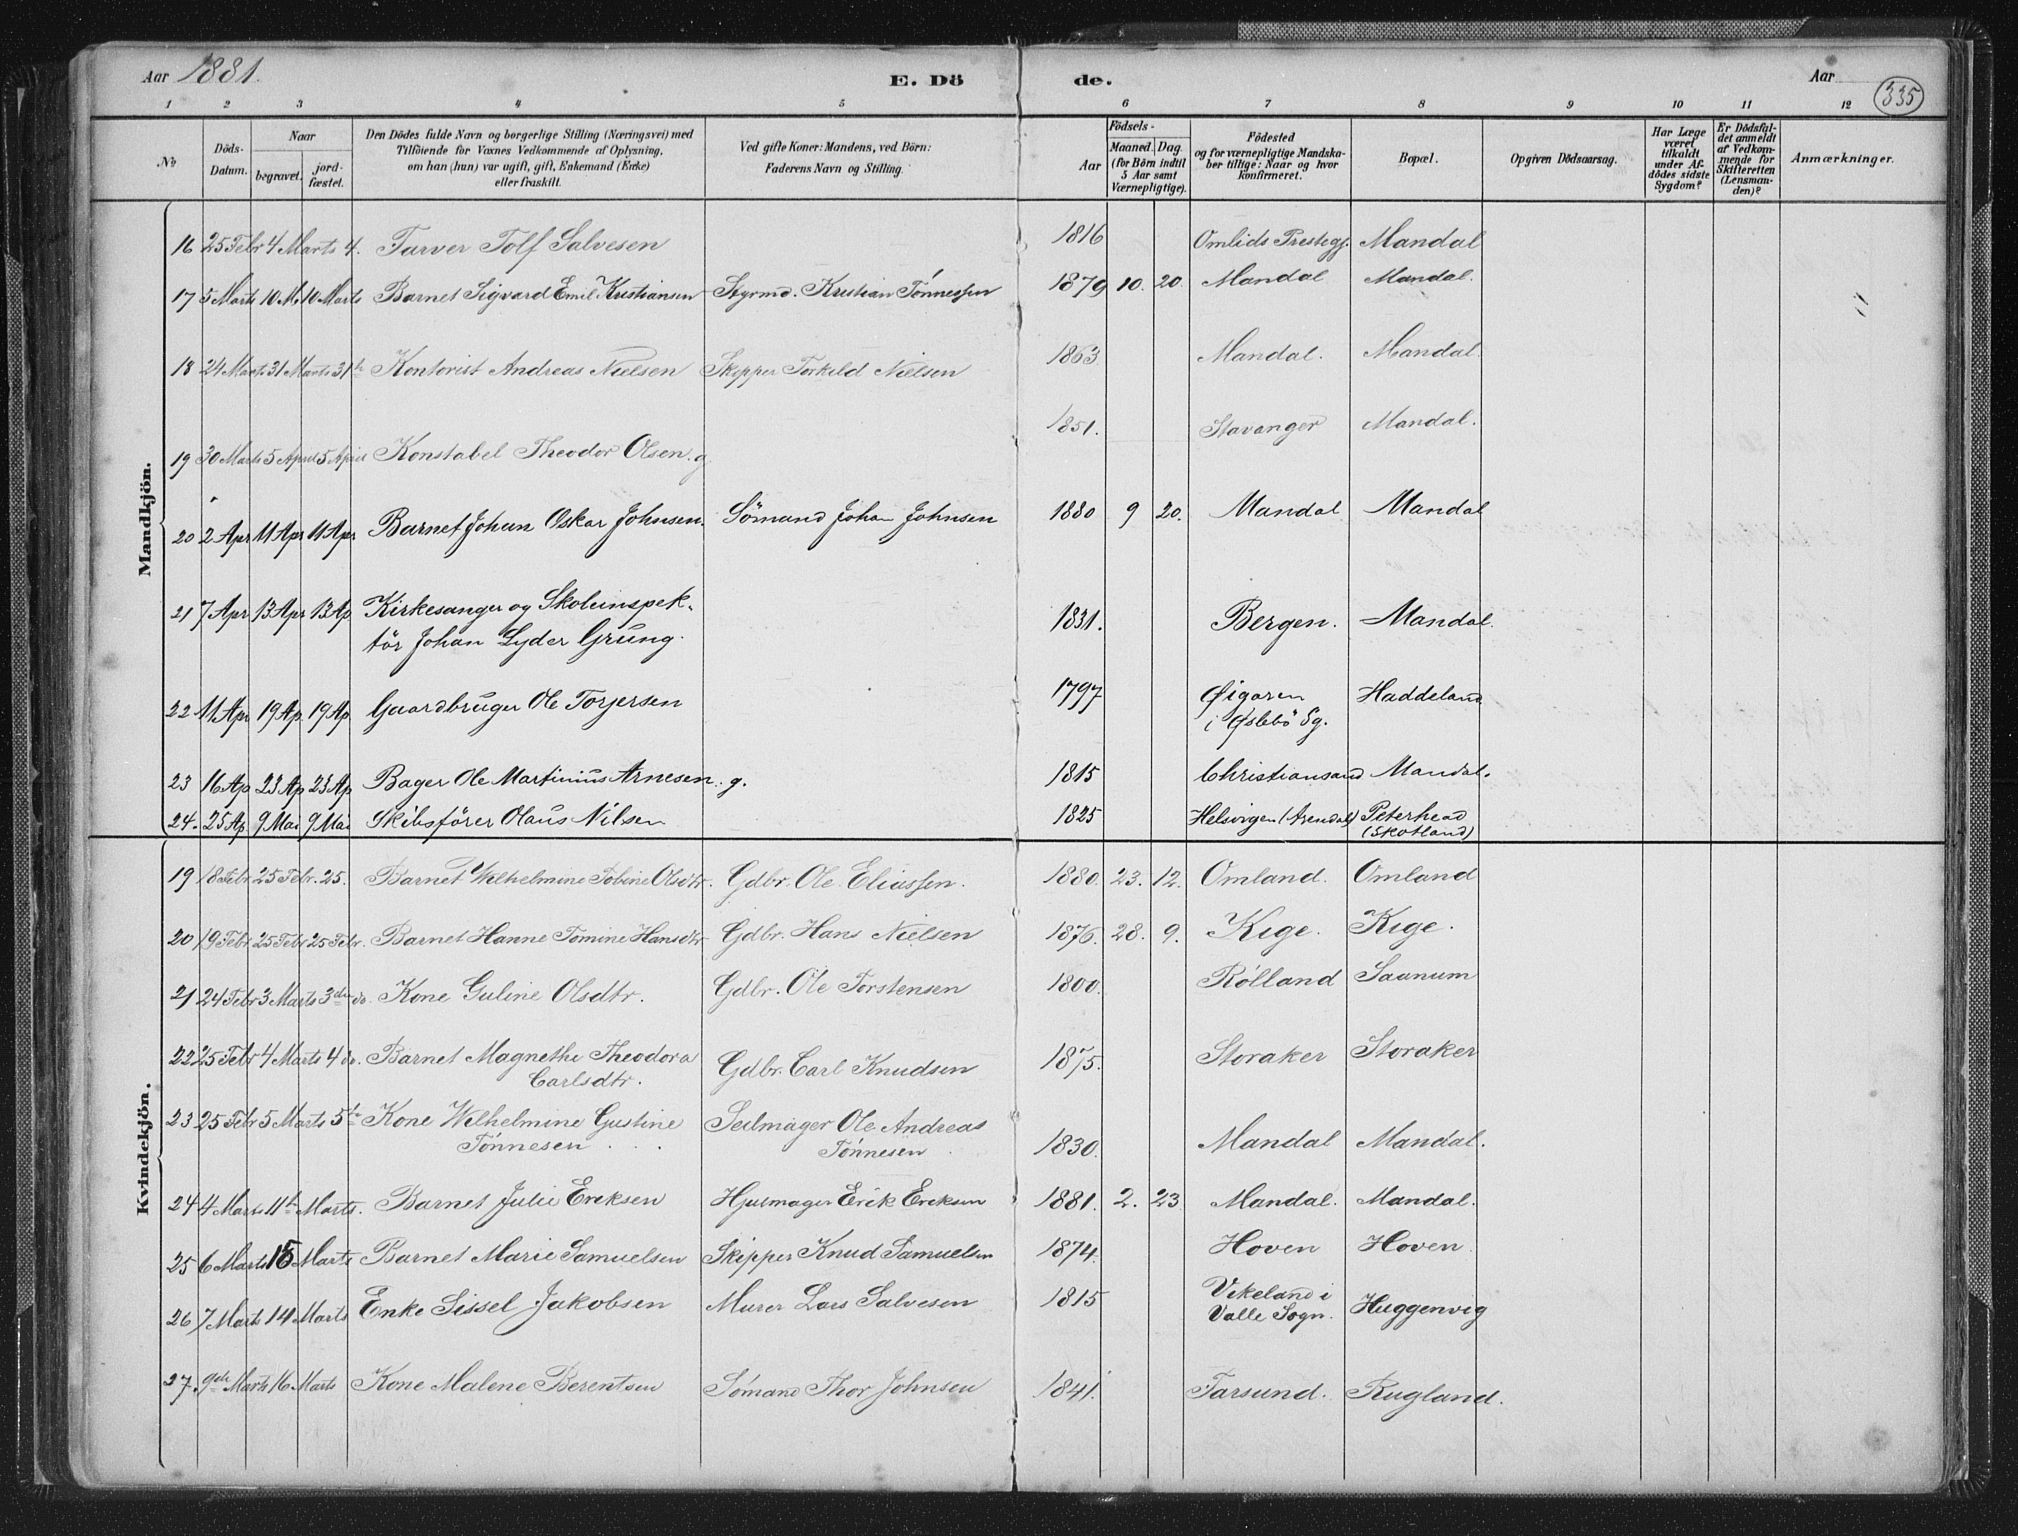 Aar 1881. E. Dö de. Aar 335
1 2 3 4 5 6 7 8 9 10 11 12
No
Döds-
Datum.
Naar
begravet.
jord-
fæstet.
Den Dödes fulde Navn og borgerlige Stilling (Næringsvei) med
Tilföiende for Voxnes Vedkommende af Oplysning,
om han (hun) var ugift, gift, Enkemand (Enke)
eller fraskilt.
Ved gifte Koner: Mandens, ved Börn:
Faderens Navn og Stilling.
Födsels-
Aar
Maaned. Dag
(for Börn indtil
5 Aar samt
Værnepligtige).
Födested
og for værnepligtige Mandska-
ber tillige: Naar og hvor
konfirmeret.
Bopæl.
Opgiven Dödsaarsag.
Har Læge
været
tilkaldt
under Af-
dödes sidste
Sygdom?
Er Dödsfal-
det anmeldt
af Vedkom-
mende for
Skifteretten
(Lensman-
den)?
Anmærkninger.
Mandkjön.
16 25 Febr 4 Marts 4. Farver Tolf Salvesen 1816 Omlids Prestegj. Mandal
17 5 Marts 10 M. 10 Marts Barnet Sigvard Emil Kristiansen Styrmd. Kristian Tönnessen 1879 10. 20. Mandal Mandal.
18 24 Marts 31 Marts 31te Kontorist Andreas Nielsen Skipper Torkild Nielsen 1863 Mandal. Mandal.
19 30 Marts 5 April 5 April Konstabel Theodor Olsen. g 1851. Stavanger Mandal.
20 2 Apr 11 Apr 11 Apr Barnet Johan Oskar Johnsen. Sömand Johan Johnsen 1880 9 20. Mandal Mandal
21 7 Apr 13 Apr 13 Ap Kirkesanger og Skoleinspek-
tör Johan Lyder Grung. 1831. Bergen. Mandal.
22 11 Apr 19 Ap. 19 Ap. Gaardbruger Ole Torjersen 1797 Øigaren Haddeland
i Øslebö Sg.
23 16 Ap 23 Ap 23 Ap Bager Ole Martinius Arnesen. g. 1815 Christiansand Mandal.
24. 25 Ap. 9 Mai 9 Mai Skibsförer Olaus Nilsen 1825 Helsvigen (Arendal) Peterhead
(Skotland)
Kvindekjön.
19 18 Febr 25 Febr. 25. Barnet Wilhelmine Tobine Olsdtr. Gdbr. Ole Eliassen. 1880. 23. 12. Omland. Omland
20 19 Febr 25 Febr 25 Febr. Barnet Hanne Tomine Hansdtr Gdbr. Hans Nielsen 1876. 28. 9. Kige. Kige.
21 24 Febr 3 Marts 3de do. Kone Guline Olsdtr. Gdbr. Ole Torstensen 1800. Rölland Saanum
22 25 Febr 4 Marts 4 do. Barnet Magnethe Theodora
Carlsdtr. Gdbr. Carl Knudsen 1875. Storaker Storaker
23 25 Febr 5 Marts 5te Kone Wilhelmine Gustine Seilmager Ole Andreas
Tönnesen Tönnesen 1830. Mandal Mandal.
24 4 Marts 11te Marts. Barnet Julie Ericksen Hjulmager Erik Ericksen 1881. 2. 23 Mandal. Mandal.
25 6 Marts 15 Marts Barnet Marie Samuelsen Skipper Knud Samuelsen 1874. Hoven Hoven
26 7 Marts 14 Marts Enke Sissel Jakobsen Murer Lars Salvesen 1815 Vikeland i
Valle Sogn. Huggenvig
27. 9de Marts 16 Marts Kone Malene Berentsen Sömand Thor Johnsen 1841. Farsund. Rugland.